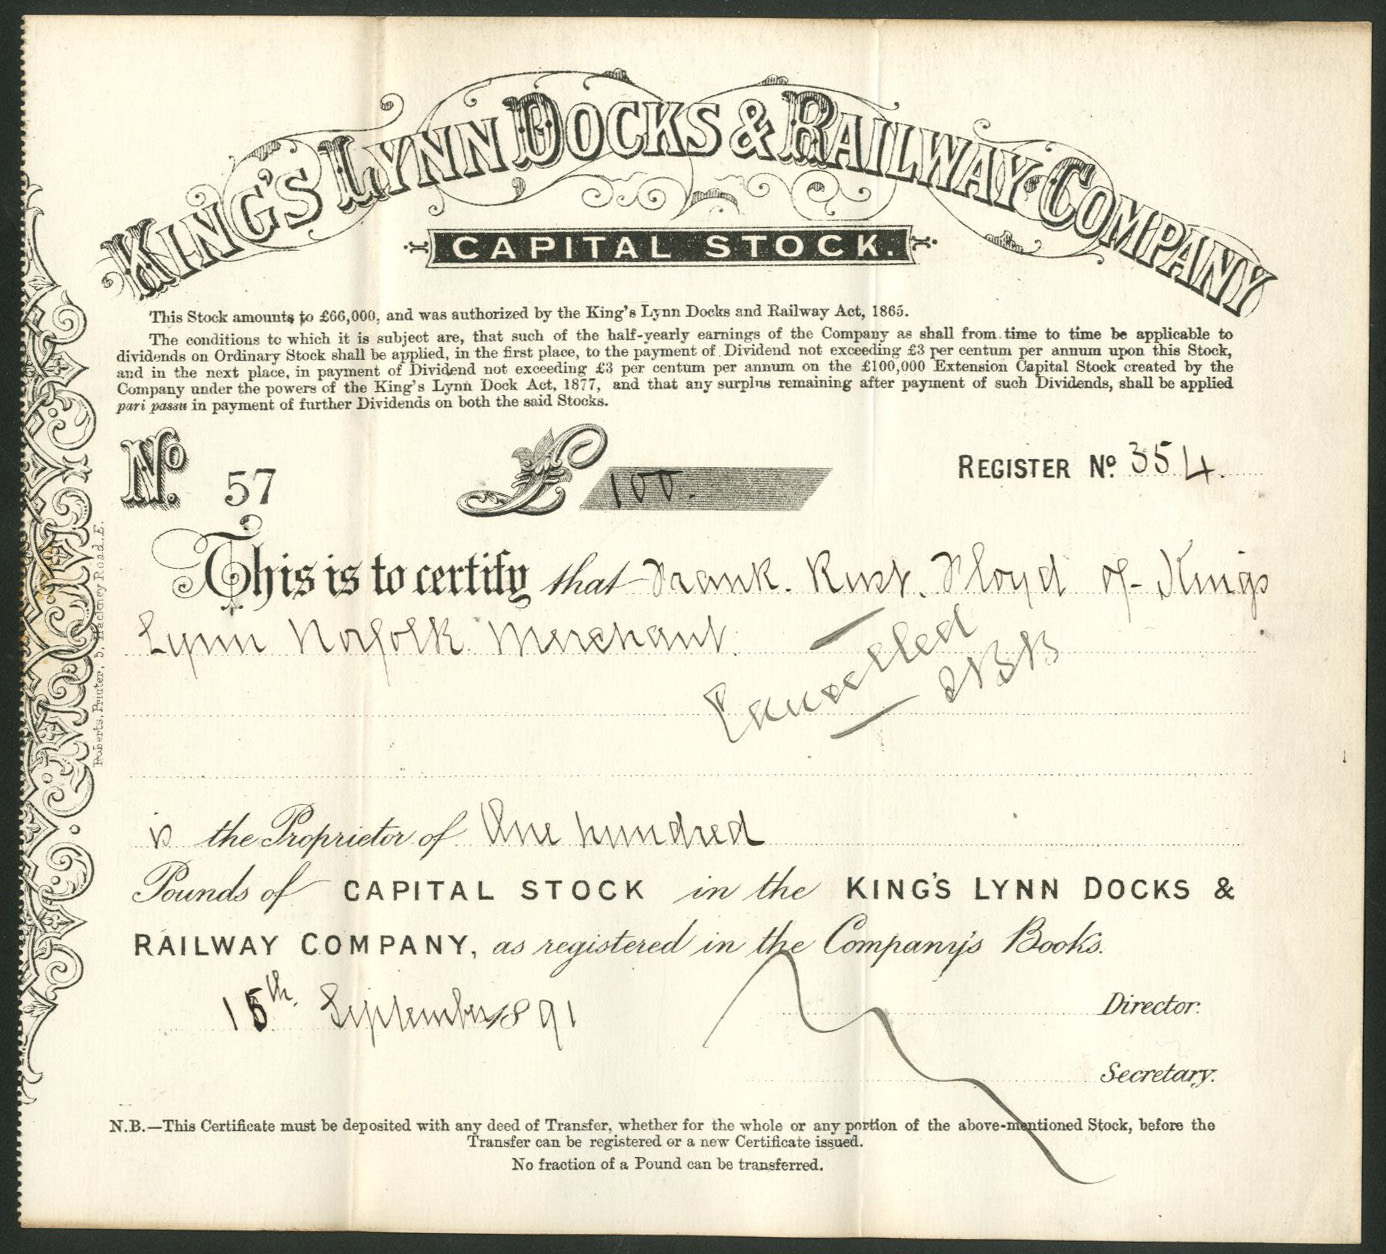 KING'S LYNN DOCKS & RAILWAY COMPANY
CAPITAL STOCK.
This Stock amounts to £66,000, and was authorized by the King's Lynn Docks and Railway Act, 1865.
The conditions to which it is subject are, that such of the half-yearly earnings of the Company as shall from time to time be applicable to
dividends on Ordinary Stock shall be applied, in the first place, to the payment of Dividend not exceeding £3 per centum per annum upon this Stock,
and in the next place, in payment of Dividend not exceeding £3 per centum per annum on the £100,000 Extension Capital Stock created by the
Company under the powers of the King's Lynn Dock Act, 1877, and that any surplus remaining after payment of such Dividends, shall be applied
pari passu in payment of further Dividends on both the said Stocks.
No. 57 £ 100. REGISTER No 354.
This is to certify that Frank. Kirst. Floyd of Kings
Lynn Norfolk Merchant.
Cancelled
is the Proprietor of One hundred
Pounds of CAPITAL STOCK in the KING'S LYNN DOCKS &
RAILWAY COMPANY, as registered in the Company's Books.
15th. September 1891
Director.
Secretary.
N.B.—This Certificate must be deposited with any deed of Transfer, whether for the whole or any portion of the above-mentioned Stock, before the
Transfer can be registered or a new Certificate issued.
No fraction of a Pound can be transferred.
Roberts, Printer, 5, Hackney Road, E.